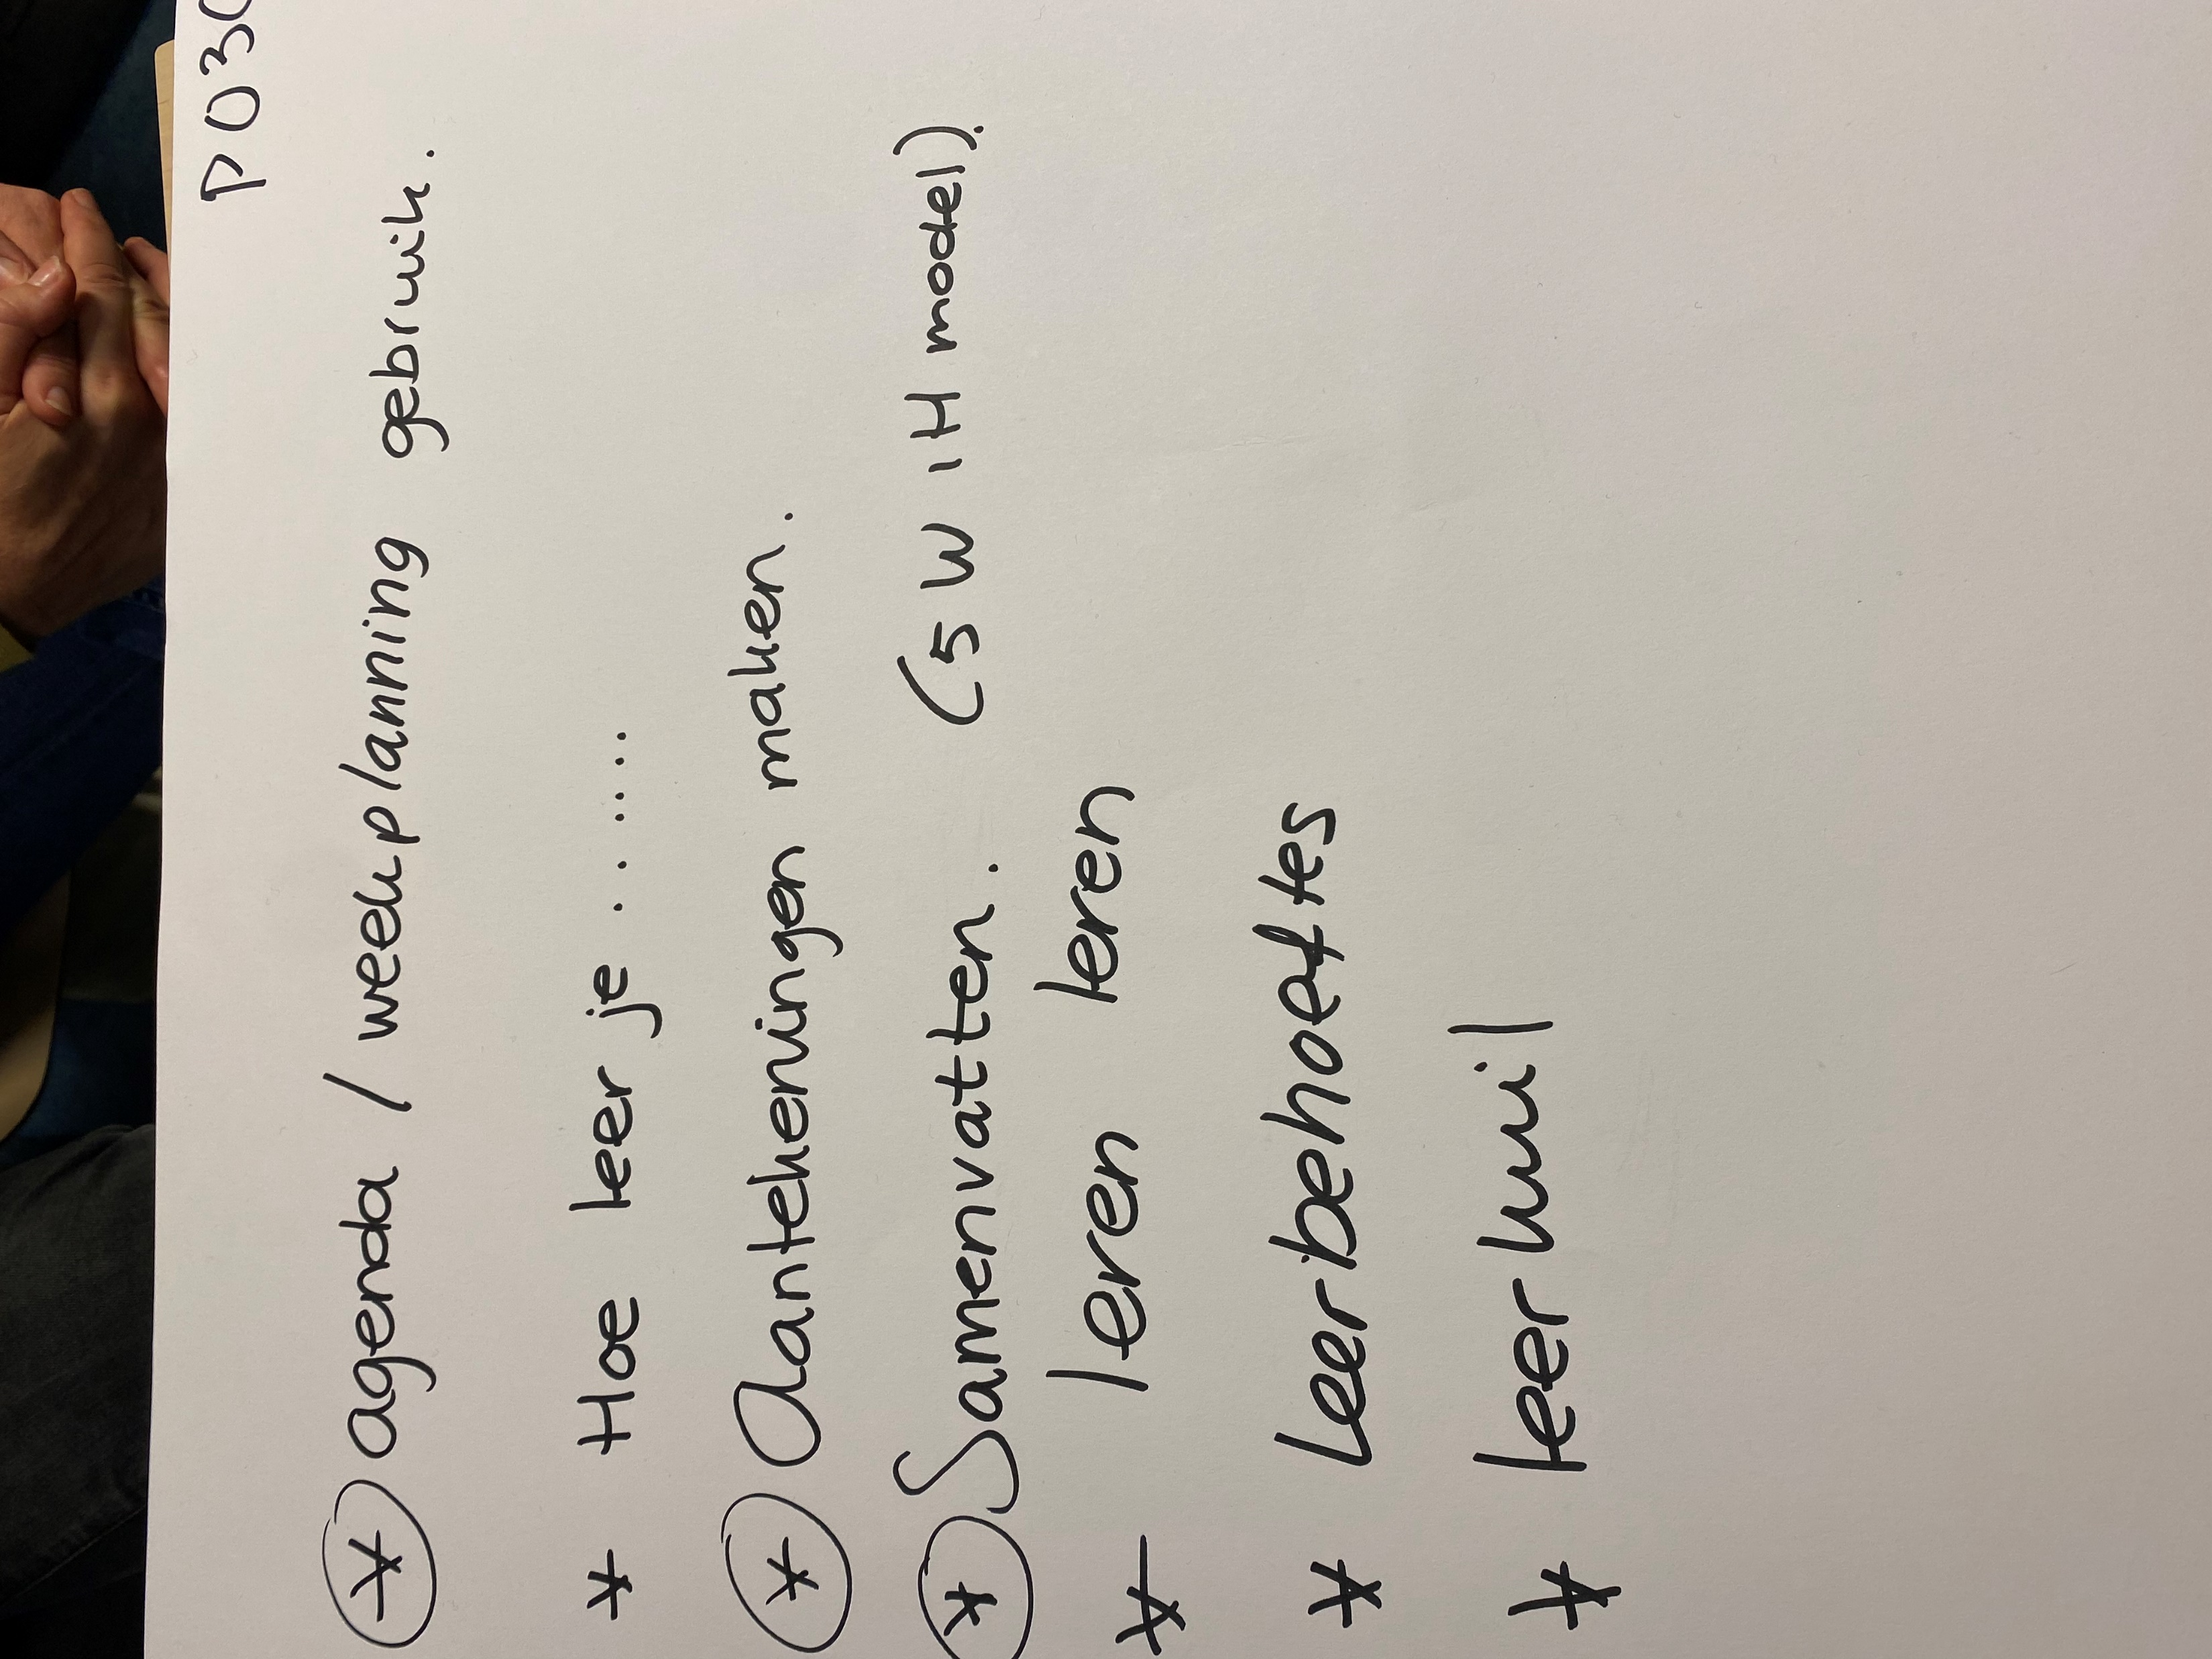 P030
* agenda / weekplanning gebruik.
* Hoe leer je ........
* Aantekeningen maken.
* Samenvatten. (5 W 1H model).
* leren leren
* Leerbehoeftes
* leerkuil